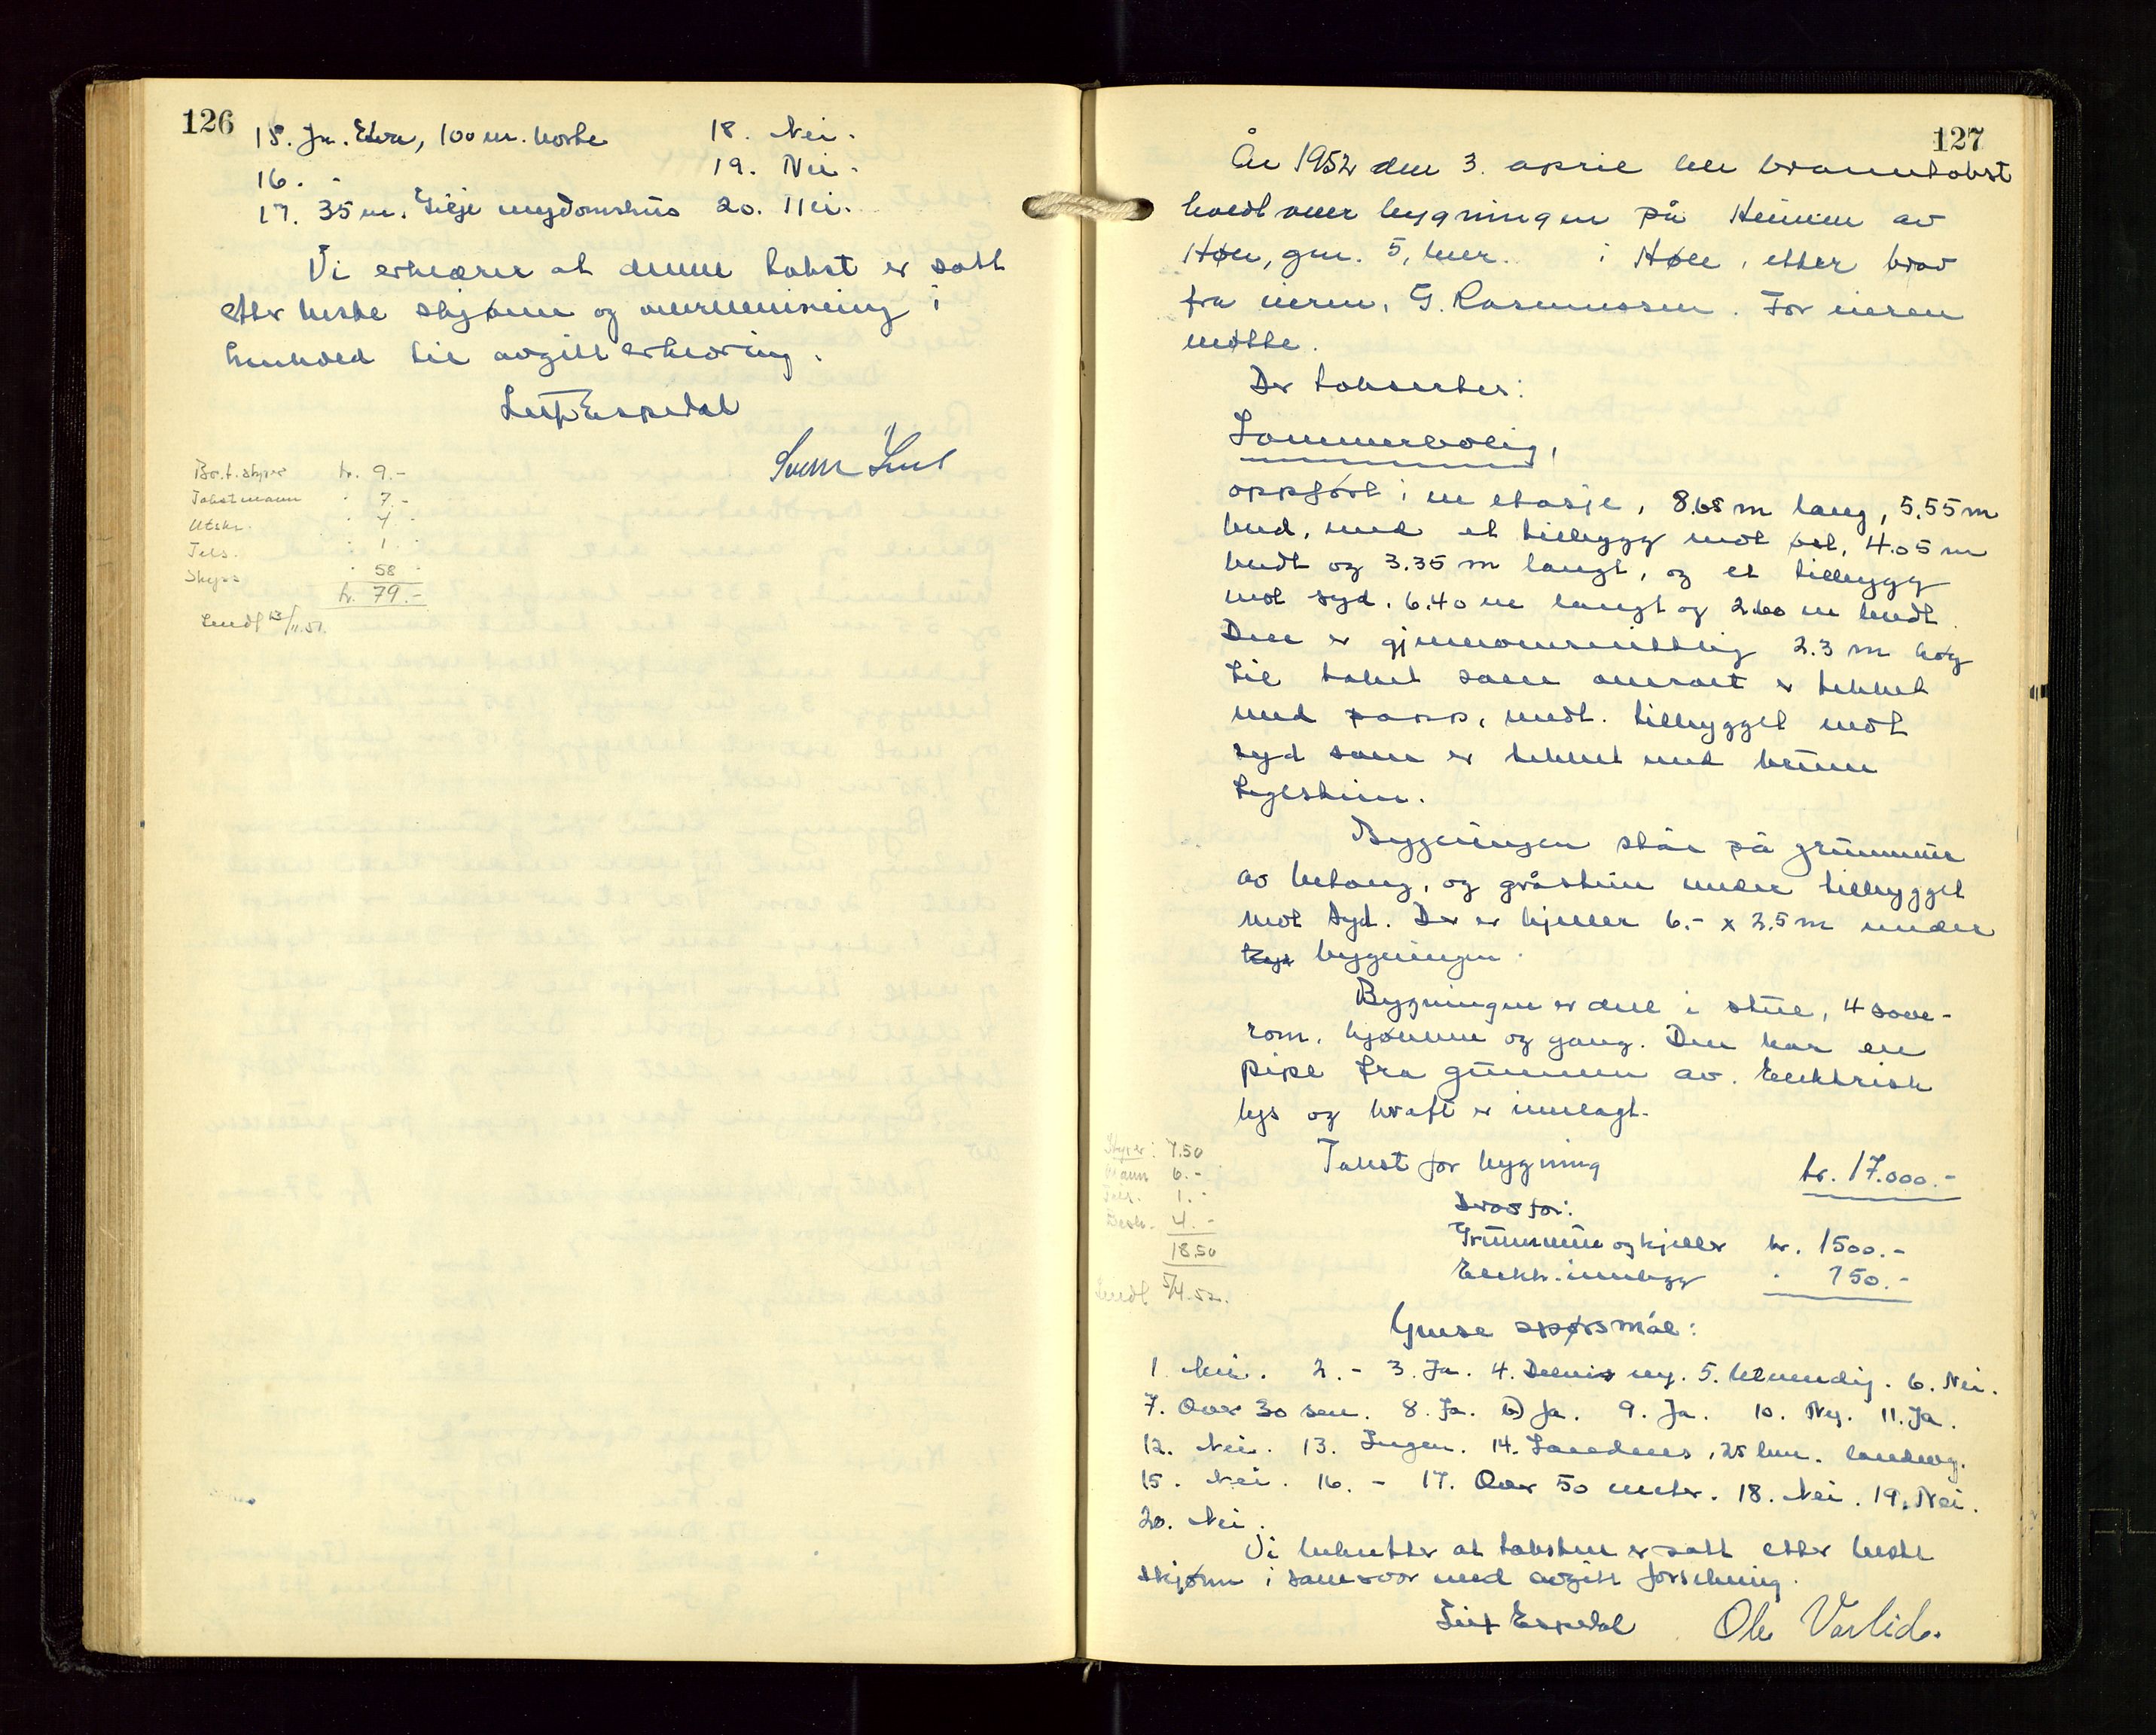 126
15. Ja. Elva, 100 m. borte
16. -
17. 35 m. Lilje ungdomshus
18. Nei.
19. Nei.
20. Nei.
Vi erklærer at denne takst er satt
etter beste skjønn og overbevisning i
henhold til avgitt erklæring.
Leif Espedal
Svein
Br.t.styre kr. 9.-
Takstmann " 7.-
Utskr. " 4 -
Tels. " 1 -
Skyss " 58 -
kr. 79.-
Sendt 13/11.51.
127
År 1952 den 3. april ble branntakst
holdt over bygningen på Heimen av
Høle, gnr. 5, bnr. i Høle, etter krav
fra eieren, G. Rasmussen. For eieren
møtte.
Der taksertes:
Sommerbolig,
oppført i en etasje, 8.65 m lang, 5.55 m
bred, med et tilbygg mot øst, 4.05 m
bredt og 3.35 m langt, og et tilbygg
mot syd, 6.40 m langt og 2.60 m bredt.
Den er gjennomsnittlig 2.3 m høg
til taket som overalt er tekket
med papp, unt. tilbygget mot
syd som er tekket med
teglstein.
Bygningen står på grunnmur
av betong, og gråstein under tilbygget
mot syd. Der er kjeller 6.- x 2.5 m under
bygningen.
Bygningen er delt i stue, 4 sove-
rom, kjøkken og gang. Den har en
pipe fra grunnen av. Elektrisk
lys og kraft er innlagt.
Takst for bygning kr. 17.000.-
Herav for:
Grunnmur og kjeller kr. 1500.-
Elektr. innlegg " 750.-
Styrer: 7.50
Mann 6.-
Tels. 1.-
Besk. 4.-
18.50
Sendt 5/4.52.
Gense spørsmål:
1. Nei. 2. - 3. Ja. 4. Delvis ny. 5. Utvendig. 6. Nei.
7. Over 30 cm. 8. Ja. b) Ja. 9. Ja. 10. Ny. 11. Ja.
12. Nei. 13. Ingen. 14. Sandnes, 25 km. landveg.
15. Nei. 16. - 17. Over 50 meter. 18. Nei. 19. Nei.
20. Nei.
Vi bekrefter at taksten er satt etter beste
skjønn i samsvar med avgitt forsikring.
Leif Espedal Ole Varlid.